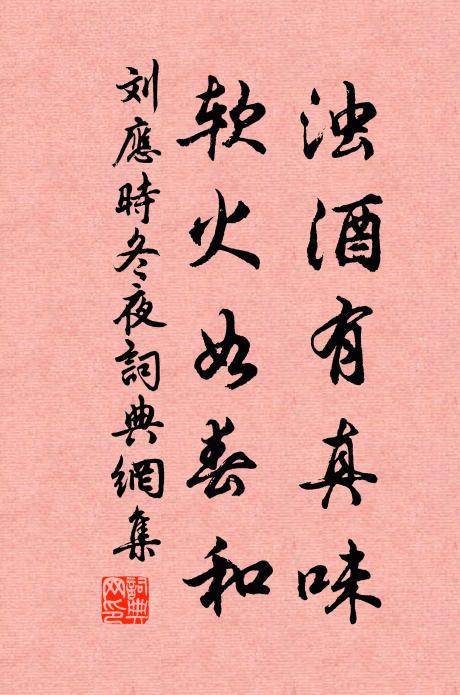 浊酒有真味
软火如春和
刘應時冬夜詞典網集
詞典網印